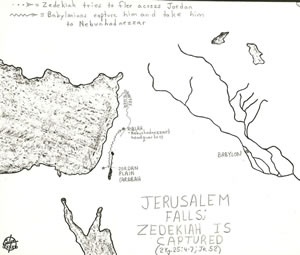 = Zedekiah tries to flee across Jordan
= Babylonians capture him and take him
to Nebuchadnezzar
RIBLAH
(Nebuchadnezzar's
headquarters)
JORDAN
PLAIN
BABYLON
JERUSALEM
FALLS;
ZEDEKIAH IS
CAPTURED
(2 Kg. 25:4-7; Jr. 52)